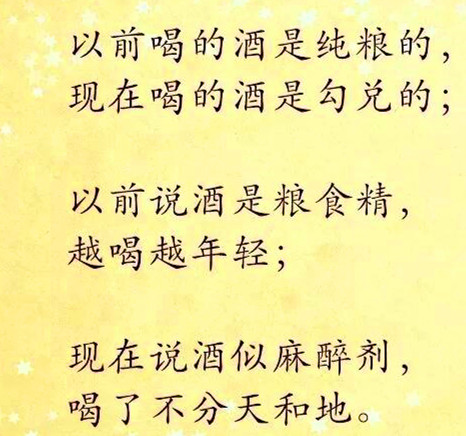 以前喝的酒是纯粮的，
现在喝的酒是勾兑的；
以前说酒是粮食精，
越喝越年轻；
现在说酒似麻醉剂，
喝了不分天和地。